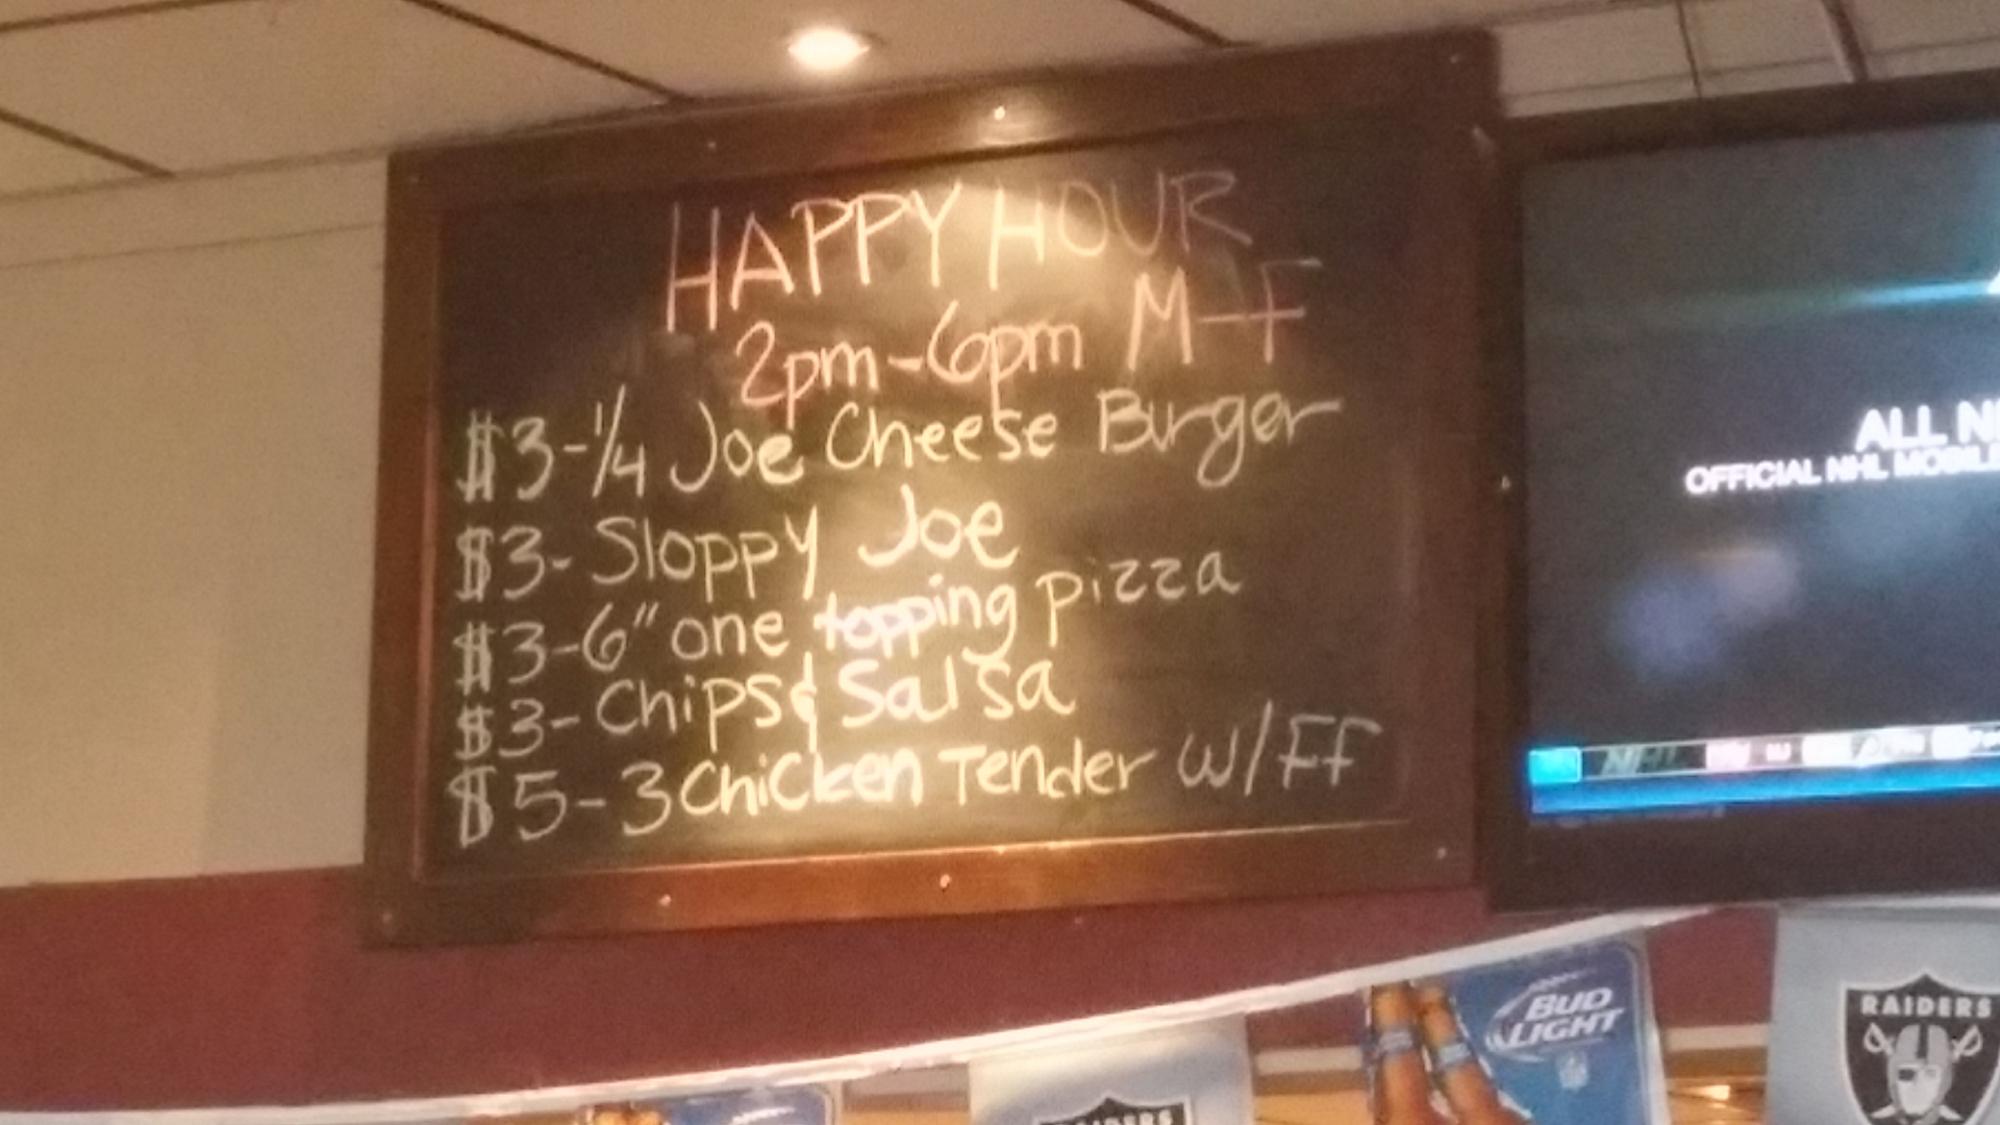 HAPPY HOUR
2pm-6pm M-F
$3-1/4 Joe Cheese Burger
$3-Sloppy Joe
$3-6" one topping pizza
$3-Chips & Salsa
$5-3 Chicken Tender w/FF
ALL
OFFICIAL NHL
NHL
BUD
LIGHT
RAIDERS